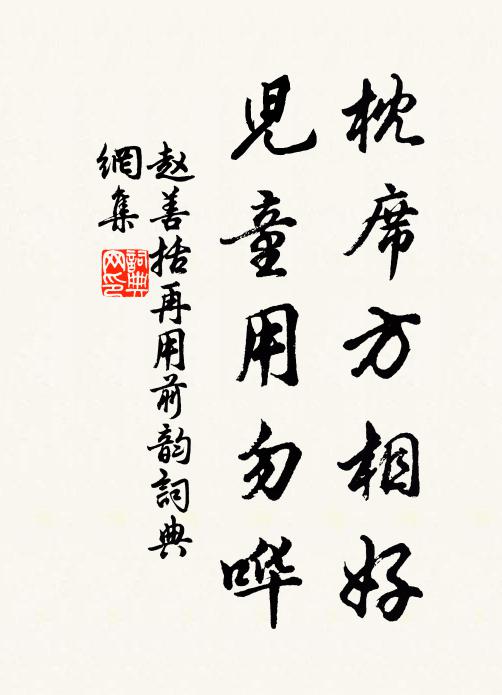 枕席方相好
児童用勿哗
赵善括再用前韵詞典
網集
詞典
网印